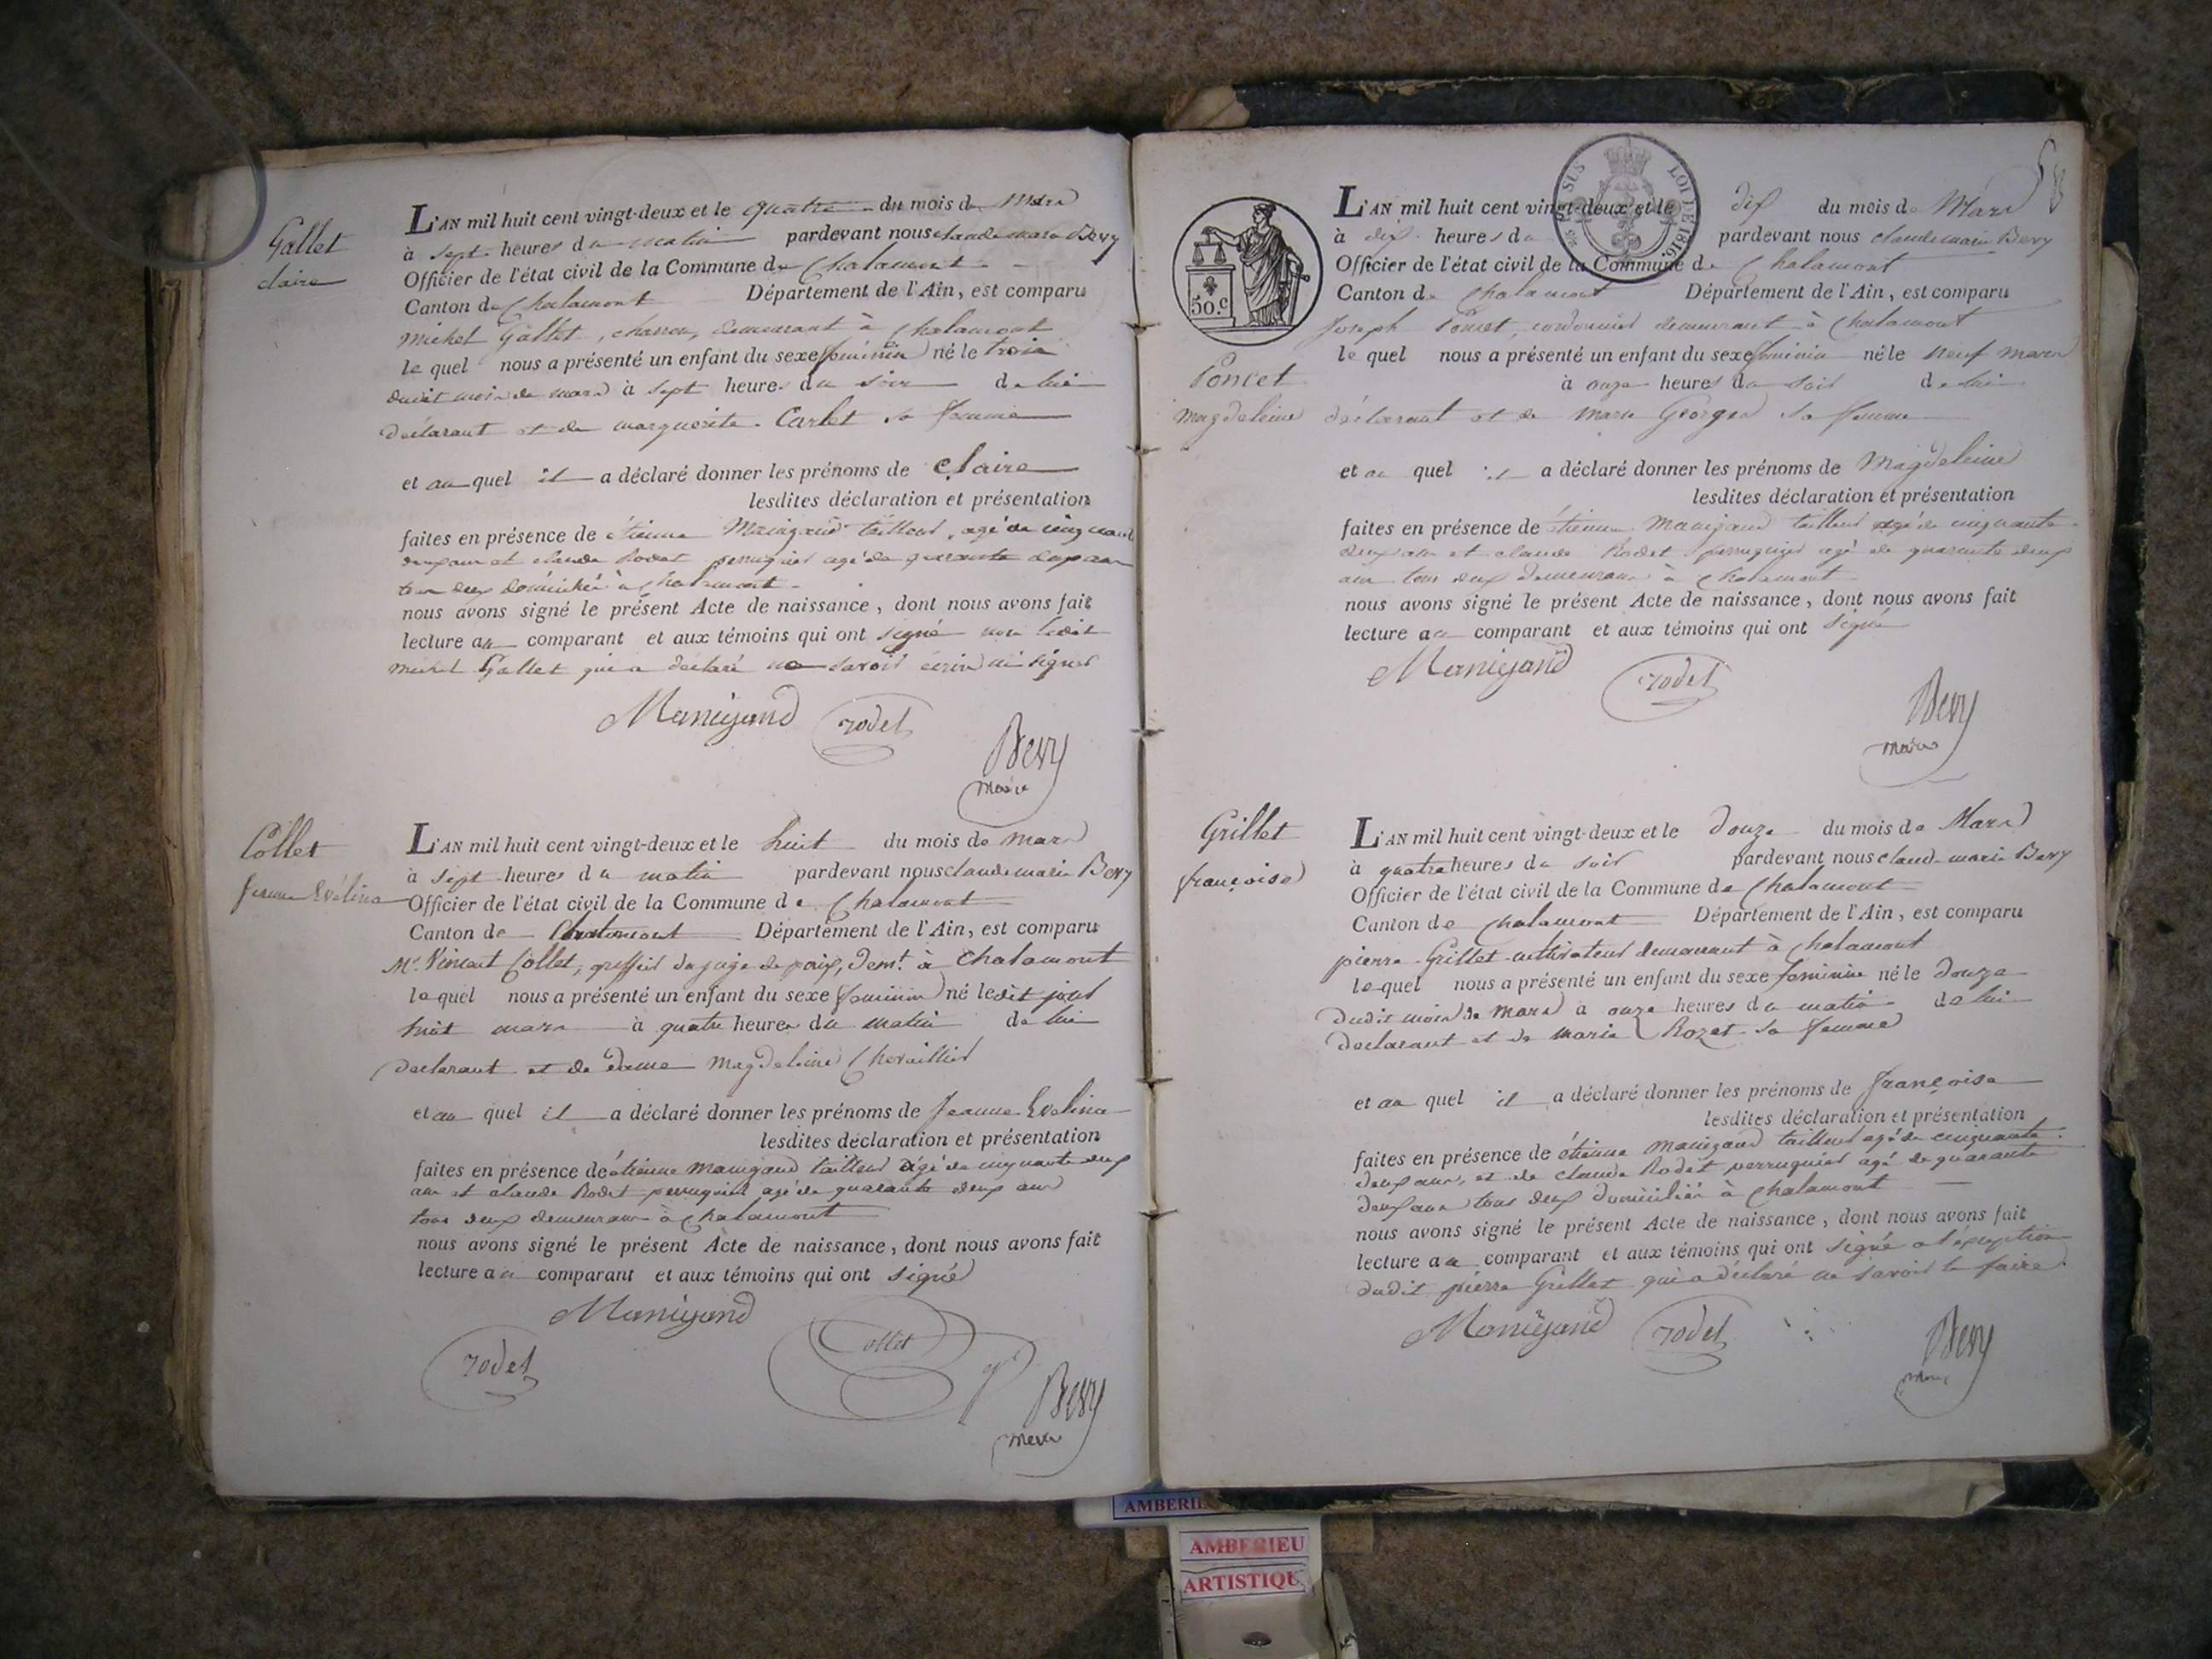 Gallet
claire
L'AN mil huit cent vingt-deux et le quatre du mois de Mars
à sept heures du matin pardevant nous claude marie Bevy
Officier de l'état civil de la Commune de Chalamont
Canton de Chalamont Département de l'Ain, est comparu
michel Gallet, charron, demeurant à Chalamont
le quel nous a présenté un enfant du sexe feminin né le trois
dudit mois de mars à sept heures du soir de lui
déclarant et de marguerite Carlet sa femme
et au quel il a déclaré donner les prénoms de claire
lesdites déclaration et présentation
faites en présence de étienne Manigand tailleur, agé de cinquante
deux ans et claude Rodet perruquier agé de quarante deux ans
tous deux domiciliés à Chalamont
nous avons signé le présent Acte de naissance, dont nous avons fait
lecture au comparant et aux témoins qui ont signé non ledit
michel Gallet qui a déclaré ne savoir écrire ni signer
Manigand rodet
Bevy
Maire
Collet
Jeanne Evélina
L'AN mil huit cent vingt-deux et le huit du mois de mars
à sept heures du matin pardevant nous claude marie Bevy
Officier de l'état civil de la Commune de Chalamont
Canton de Chalamont Département de l'Ain, est comparu
Mr. Vincent Collet, greffier du juge de paix, demt. à Chalamont
le quel nous a présenté un enfant du sexe feminin né ledit jour
huit mars à quatre heures du matin de lui
declarant et de dame Magdeleine Chevaillier
et au quel il a déclaré donner les prénoms de Jeanne Evelina
lesdites déclaration et présentation
faites en présence de étienne manigand tailleur agé de cinquante deux
ans et claude Rodet perruquier agé de quarante deux ans
tous deux demeurans à Chalamont
nous avons signé le présent Acte de naissance, dont nous avons fait
lecture au comparant et aux témoins qui ont signé
Manigand
rodet Collet
Bevy
Maire
58
SUS LOI DE 1816
50.c
Poncet
Magdeleine
L'AN mil huit cent vingt-deux et le dix du mois de Mars
à dix heures du pardevant nous claude marie Bevy
Officier de l'état civil de la Commune de Chalamont
Canton de Chalamont Département de l'Ain, est comparu
Joseph Poncet, cordonnier demeurant à Chalamont
le quel nous a présenté un enfant du sexe feminin né le neuf mars
à onze heures du soir de lui
déclarant et de marie Georges sa femme
et au quel il a déclaré donner les prénoms de Magdeleine
lesdites déclaration et présentation
faites en présence de étienne Manigand tailleur agé de cinquante
deux ans et claude Rodet perruquier agé de quarante deux
ans tous deux demeurans à Chalamont
nous avons signé le présent Acte de naissance, dont nous avons fait
lecture au comparant et aux témoins qui ont signé
Manigand rodet
Bevy
Maire
Grillet
françoise
L'AN mil huit cent vingt-deux et le douze du mois de Mars
à quatre heures du soir pardevant nous claude marie Bevy
Officier de l'état civil de la Commune de Chalamont
Canton de Chalamont Département de l'Ain, est comparu
pierre Grillet cultivateur demeurant à Chalamont
le quel nous a présenté un enfant du sexe feminin né le douze
dudit mois de mars à onze heures du matin de lui
declarant et de marie Rozet sa femme
et au quel il a déclaré donner les prénoms de françoise
lesdites déclaration et présentation
faites en présence de étienne manigand tailleur agé de cinquante
deux ans, et de claude Rodet perruquier agé de quarante
deux ans tous deux domiciliés à Chalamont
nous avons signé le présent Acte de naissance, dont nous avons fait
lecture au comparant et aux témoins qui ont signé a l'exception
dudit pierre Grillet qui a déclaré ne savoir le faire.
Manigand rodet
Bevy
Maire
AMBERIE
AMBERIEU
ARTISTIQU